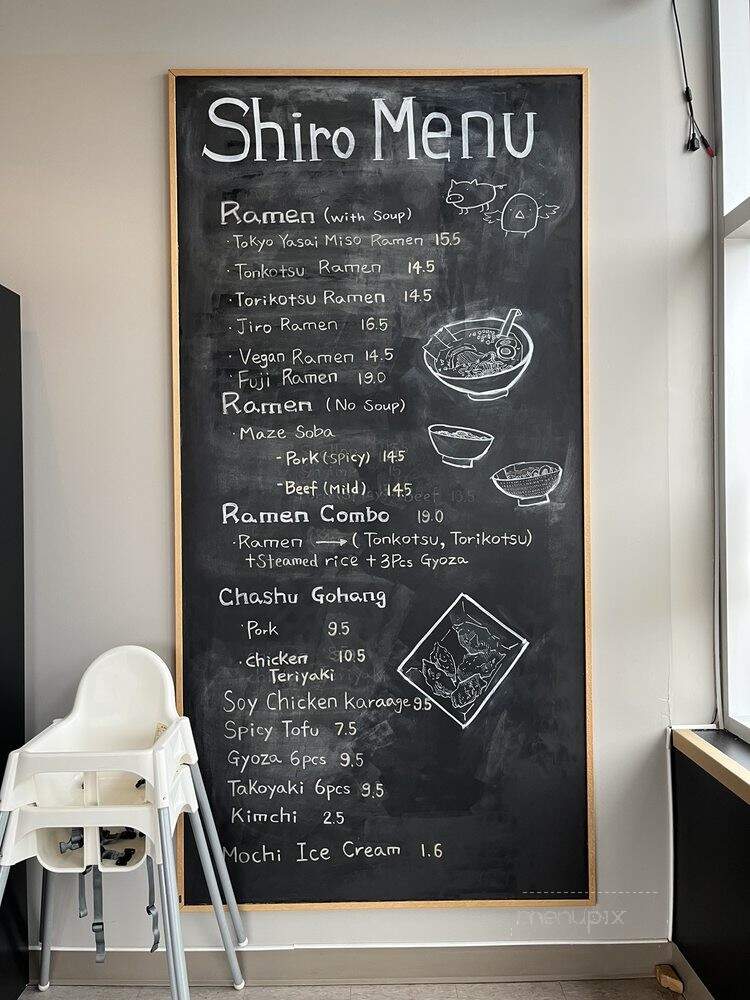 Shiro Menu
Ramen (with Soup)
· Tokyo Yasai Miso Ramen 15.5
· Tonkotsu Ramen 14.5
· Torikotsu Ramen 14.5
· Jiro Ramen 16.5
· Vegan Ramen 14.5
· Fuji Ramen 19.0
Ramen (No Soup)
· Maze Soba
- Pork (Spicy) 14.5
- Beef (Mild) 14.5
Ramen Combo 19.0
· Ramen → ( Tonkotsu, Torikotsu)
+Steamed rice + 3Pcs Gyoza
Chashu Gohang
· Pork 9.5
· chicken 10.5
Teriyaki
Soy Chicken karaage 9.5
Spicy Tofu 7.5
Gyoza 6pcs 9.5
Takoyaki 6pcs 9.5
Kimchi 2.5
Mochi Ice Cream 1.6
menupix